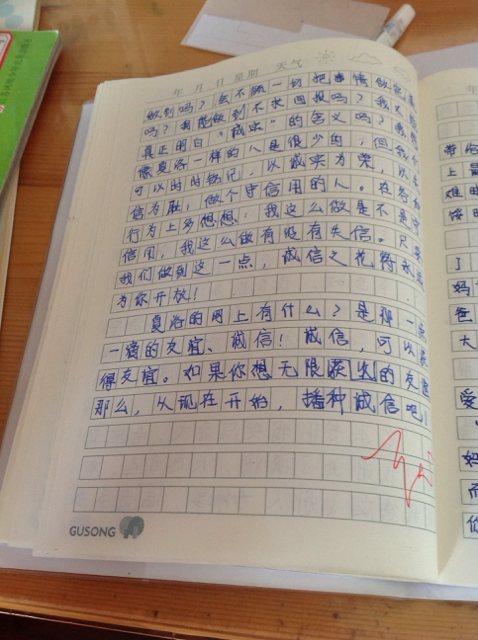 年 月 日 星期 天气
做到吗？会不顾一切把事情做完
吗？我能做到不求回报吗？我不
真正明白“诚实”的含义吗？我想
像夏洛一样的人是很少的，但我们
可以时时铭记，以诚实为荣，以
信为耻，做个守信用的人。在各
行为上多想想：我这么做是不是守
信用，我这么做有没有失信。只要
我们做到这一点，诚信之花将永远
为你开放！
夏洛的网上有什么？是那一点
一滴的友谊、诚信！诚信，可以
得友谊。如果你想无限获出的友谊
那么，从现在开始，播种诚信吧！
GUSONG
带
上
难
了
妈
爸
大
爱
妈
而
你